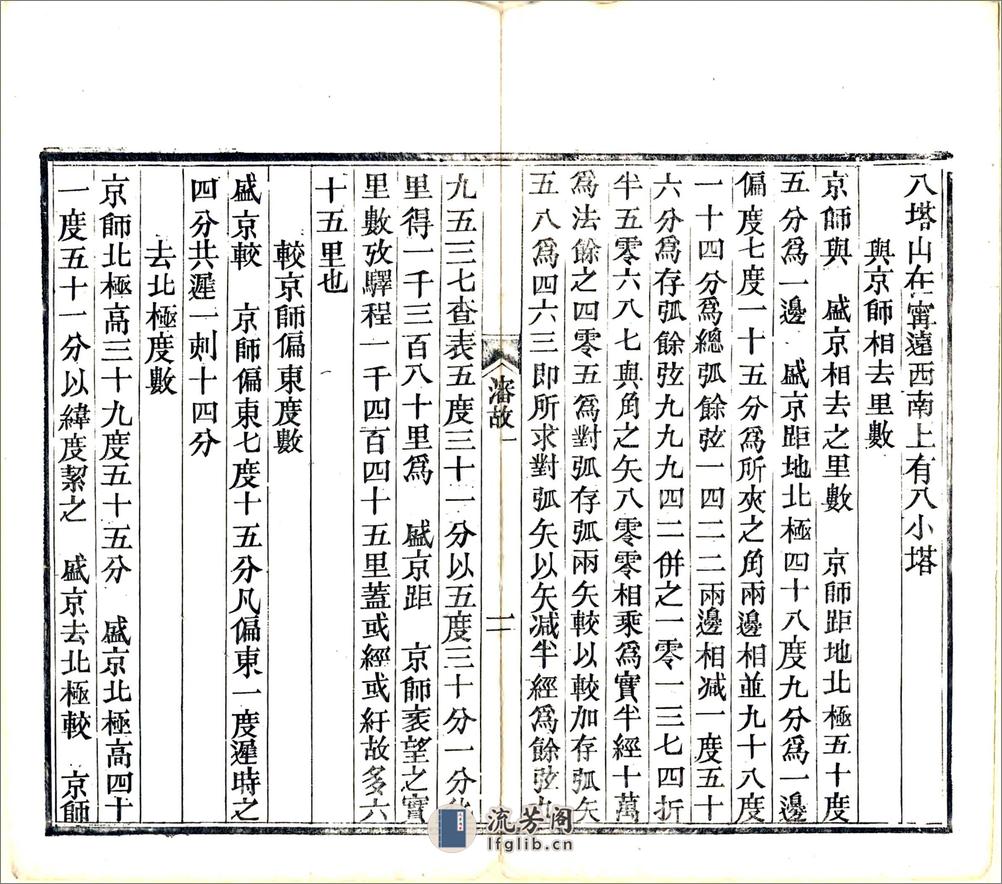 八塔山在甯遠西南上有八小塔
與京師相去里數
京師與　盛京相去之里數　京師距地北極五十度
五分爲一邊　盛京距地北極四十八度九分爲一邊
偏度七度一十五分爲所夾之角兩邊相並九十八度
一十四分爲總弧餘弦一四二二兩邊相减一度五十
六分爲存弧餘弦九九九四二併之一零一三七四折
半五零六八七與角之矢八零零相乘爲實半經十萬
爲法餘之四零五爲對弧存弧兩矢較以較加存弧矢
五八爲四六三即所求對弧矢以矢减半經爲餘弦九
瀋故一
二
九五三七查表五度三十一分以五度三十分一分化
里得一千三百八十里爲　盛京距　京師袤望之實
里數攷驛程一千四百四十五里蓋或經或紆故多六
十五里也
較京師偏東度數
盛京較　京師偏東七度十五分凡偏東一度遲時之
四分共遲一刺十四分
去北極度數
京師北極高三十九度五十五分　盛京北極高四十
一度五十一分以緯度絜之　盛京去北極較　京師
流芳阁
lfglib.cn